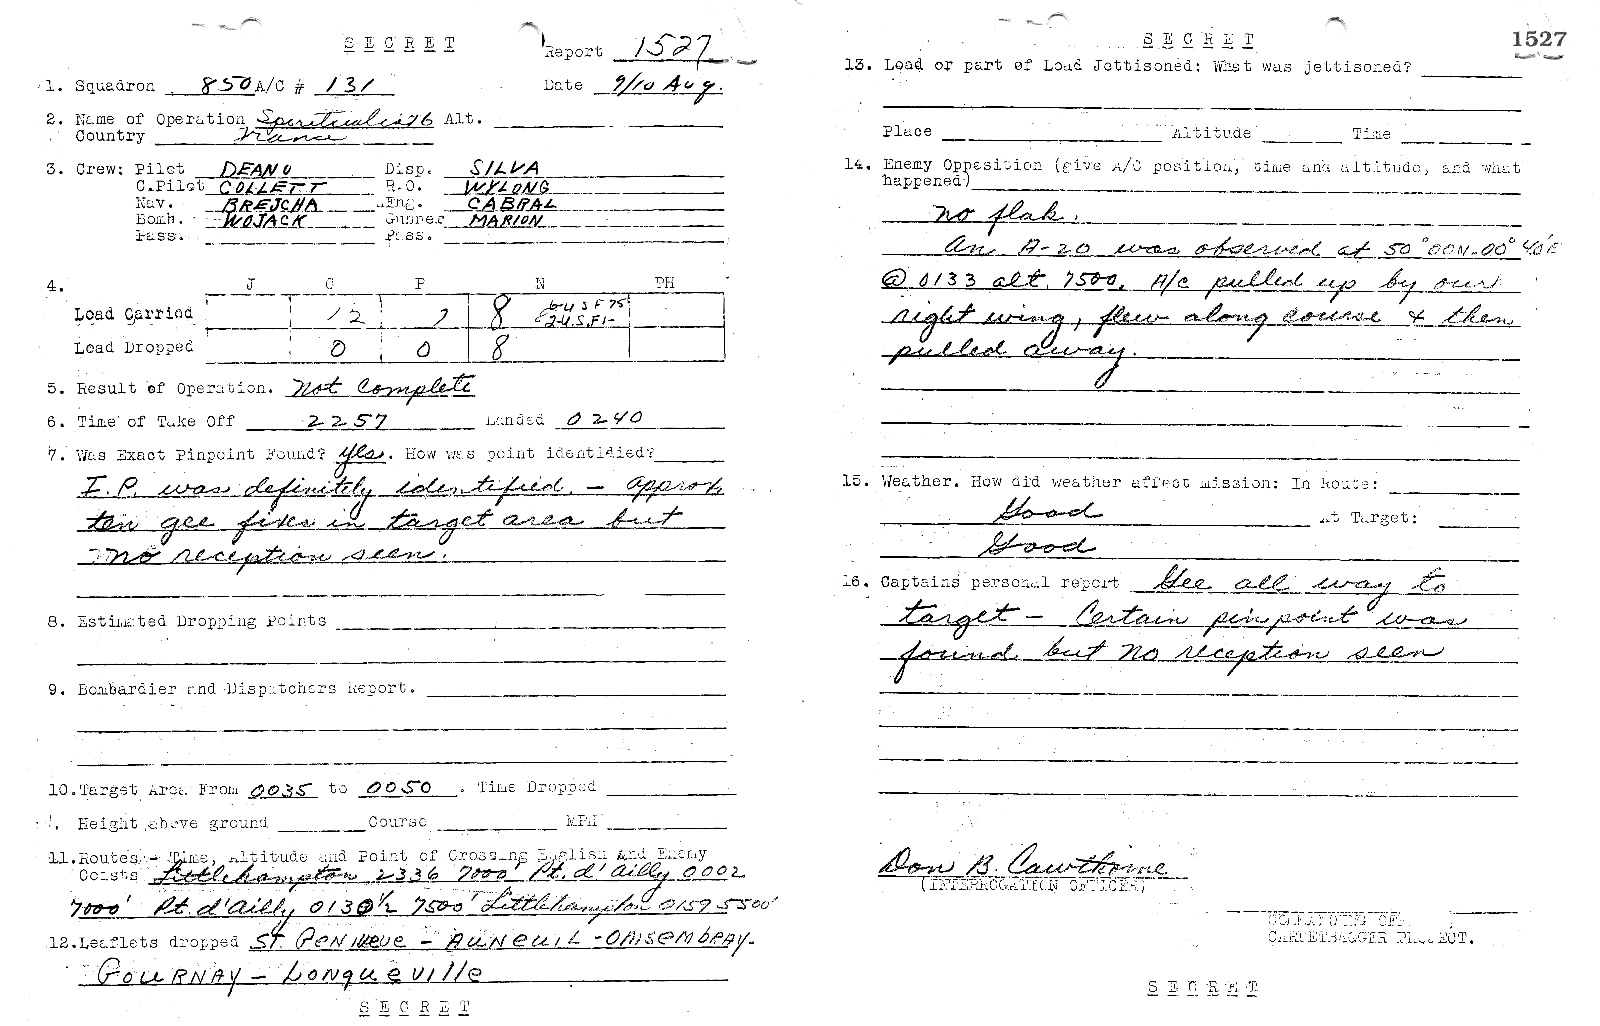 SECRET
Report 1527
1. Squadron 850 A/C # 131 Date 9/10 Aug.
2. Name of Operation Spiritualis 76 Alt.
Country France
3. Crew: Pilot DEANO Disp. SILVA
C.Pilot COLLETT R.O. WYLONG
Nav. BREJCHA Eng. CABRAL
Bomb. WOJACK Gunner MARION
Pass. Pass.
4. J C P N PH
Load Carried 12 7 8 6-USF75 2-USF1-
Load Dropped 0 0 8
5. Result of Operation. Not Complete
6. Time of Take Off 2257 Landed 0240
7. Was Exact Pinpoint Found? Yes. How was point identidied?
I.P. was definitely identified. - approx
ten gee fixes in target area but
no reception seen.
8. Estimated Dropping Points
9. Bombardier and Dispatchers Report.
10. Target Area From 0035 to 0050. Time Dropped
Height above ground Course MPH
11. Routes - Time, Altitude and Point of Crossing English and Enemy
Coasts Littlehampton 2336 7000' Pt. d'Ailly 0002
7000' Pt. d'Ailly 0130½ 7500' Littlehampton 0159 5500'
12. Leaflets dropped ST. GENIVEUE - AUNEUIL - ONSEMBRAY-
GOURNAY - LONGUEVILLE
SECRET
SECRET
1527
13. Load or part of Load Jettisoned: What was jettisoned?
Place Altitude Time
14. Enemy Opposition (give A/C position, time and altitude, and what
happened)
no flak.
An A-20 was observed at 50°00N-00°40'E
@ 0133 alt. 7500. A/c pulled up by our
right wing, flew along course & then
pulled away.
15. Weather. How did weather affect mission: In Route:
Good At Target:
Good
16. Captains personal report Gee all way to
target - Certain pinpoint was
found but no reception seen
Don B. Cawthorne
(INTERROGATION OFFICER)
COMMANDING OF.
CARPETBAGGER PROJECT.
SECRET